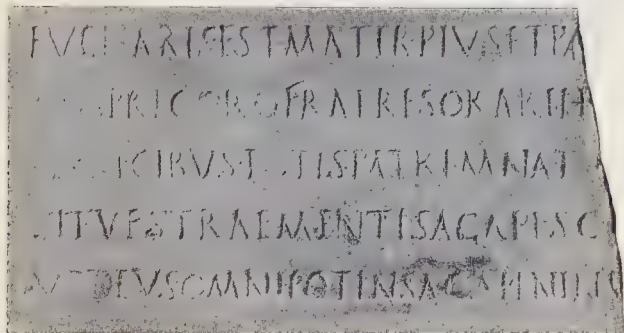 EVCHARISESTMATERPIVSETPA
PRECOROFRATRESORAREH
ECIBVST TISPATREMNAT
SITVESTRAEMENTISAGAPESC
VTDEVSOMNIPOTENSAGAPENIN